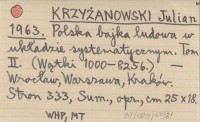 KRZYŻANOWSKI Julian
1963. Polska bajka ludowa w
układzie systematycznym. Tom
II. (Wątki 1000-8256.) —
Wrocław, Warszawa, Kraków.
Stron 333, Sum., opr., cm 25 x 18.
WHP, MT